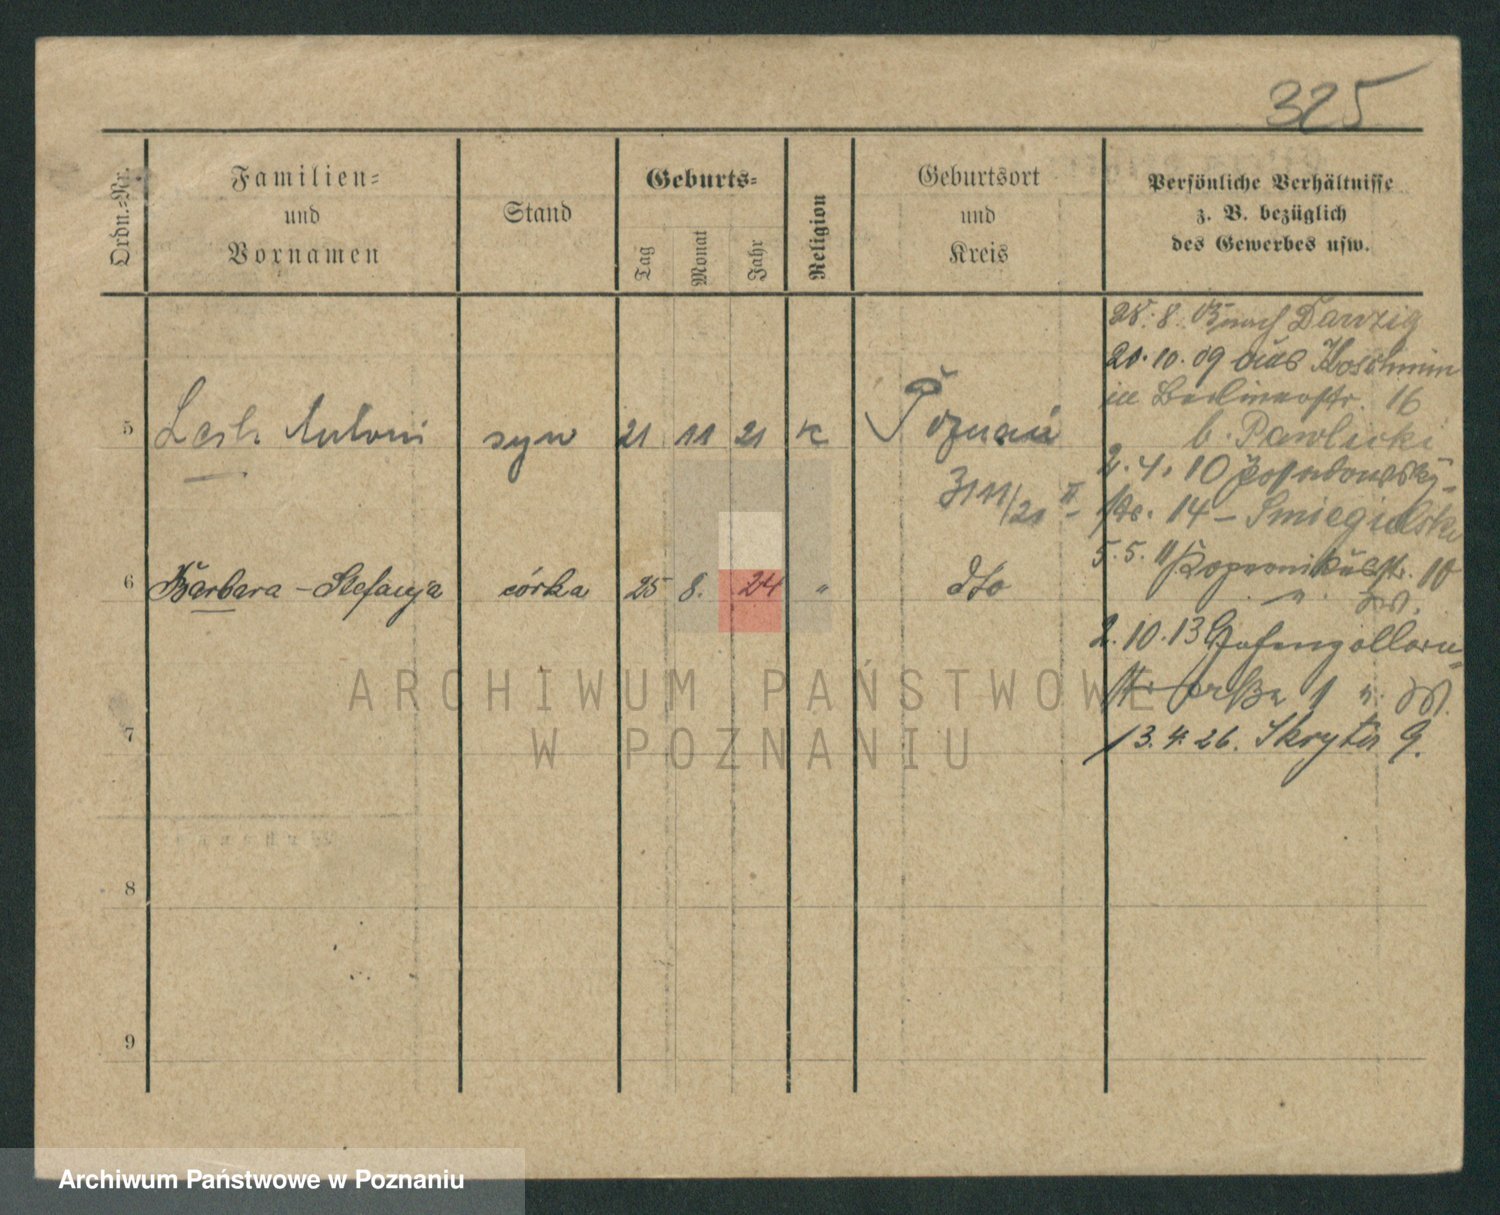 325
Ordn.-Nr.
Familien-
und
Vornamen
Stand
Geburts-
Tag
Monat
Jahr
Religion
Geburtsort
und
Kreis
Persönliche Verhältnisse
z. B. bezüglich
des Gewerbes usw.
28. 8. nach Danzig
20. 10. 09 aus Koschmin
Berlinerstr. 16
b. Pawlicki
5 Lech Antoni syn 21 11 21 K Poznań
2. 4. 10
14 – Smiegielski
5. 5. 11 Kopernikusstr. 10
6 Barbara – Stefanja córka 25 8. 24 " dto
2. 10. 13 Hohenzollern-
straße 1
13. 4. 26. Skryta 9.
7
8
9
ARCHIWUM PAŃSTWOWE
W POZNANIU
Archiwum Państwowe w Poznaniu